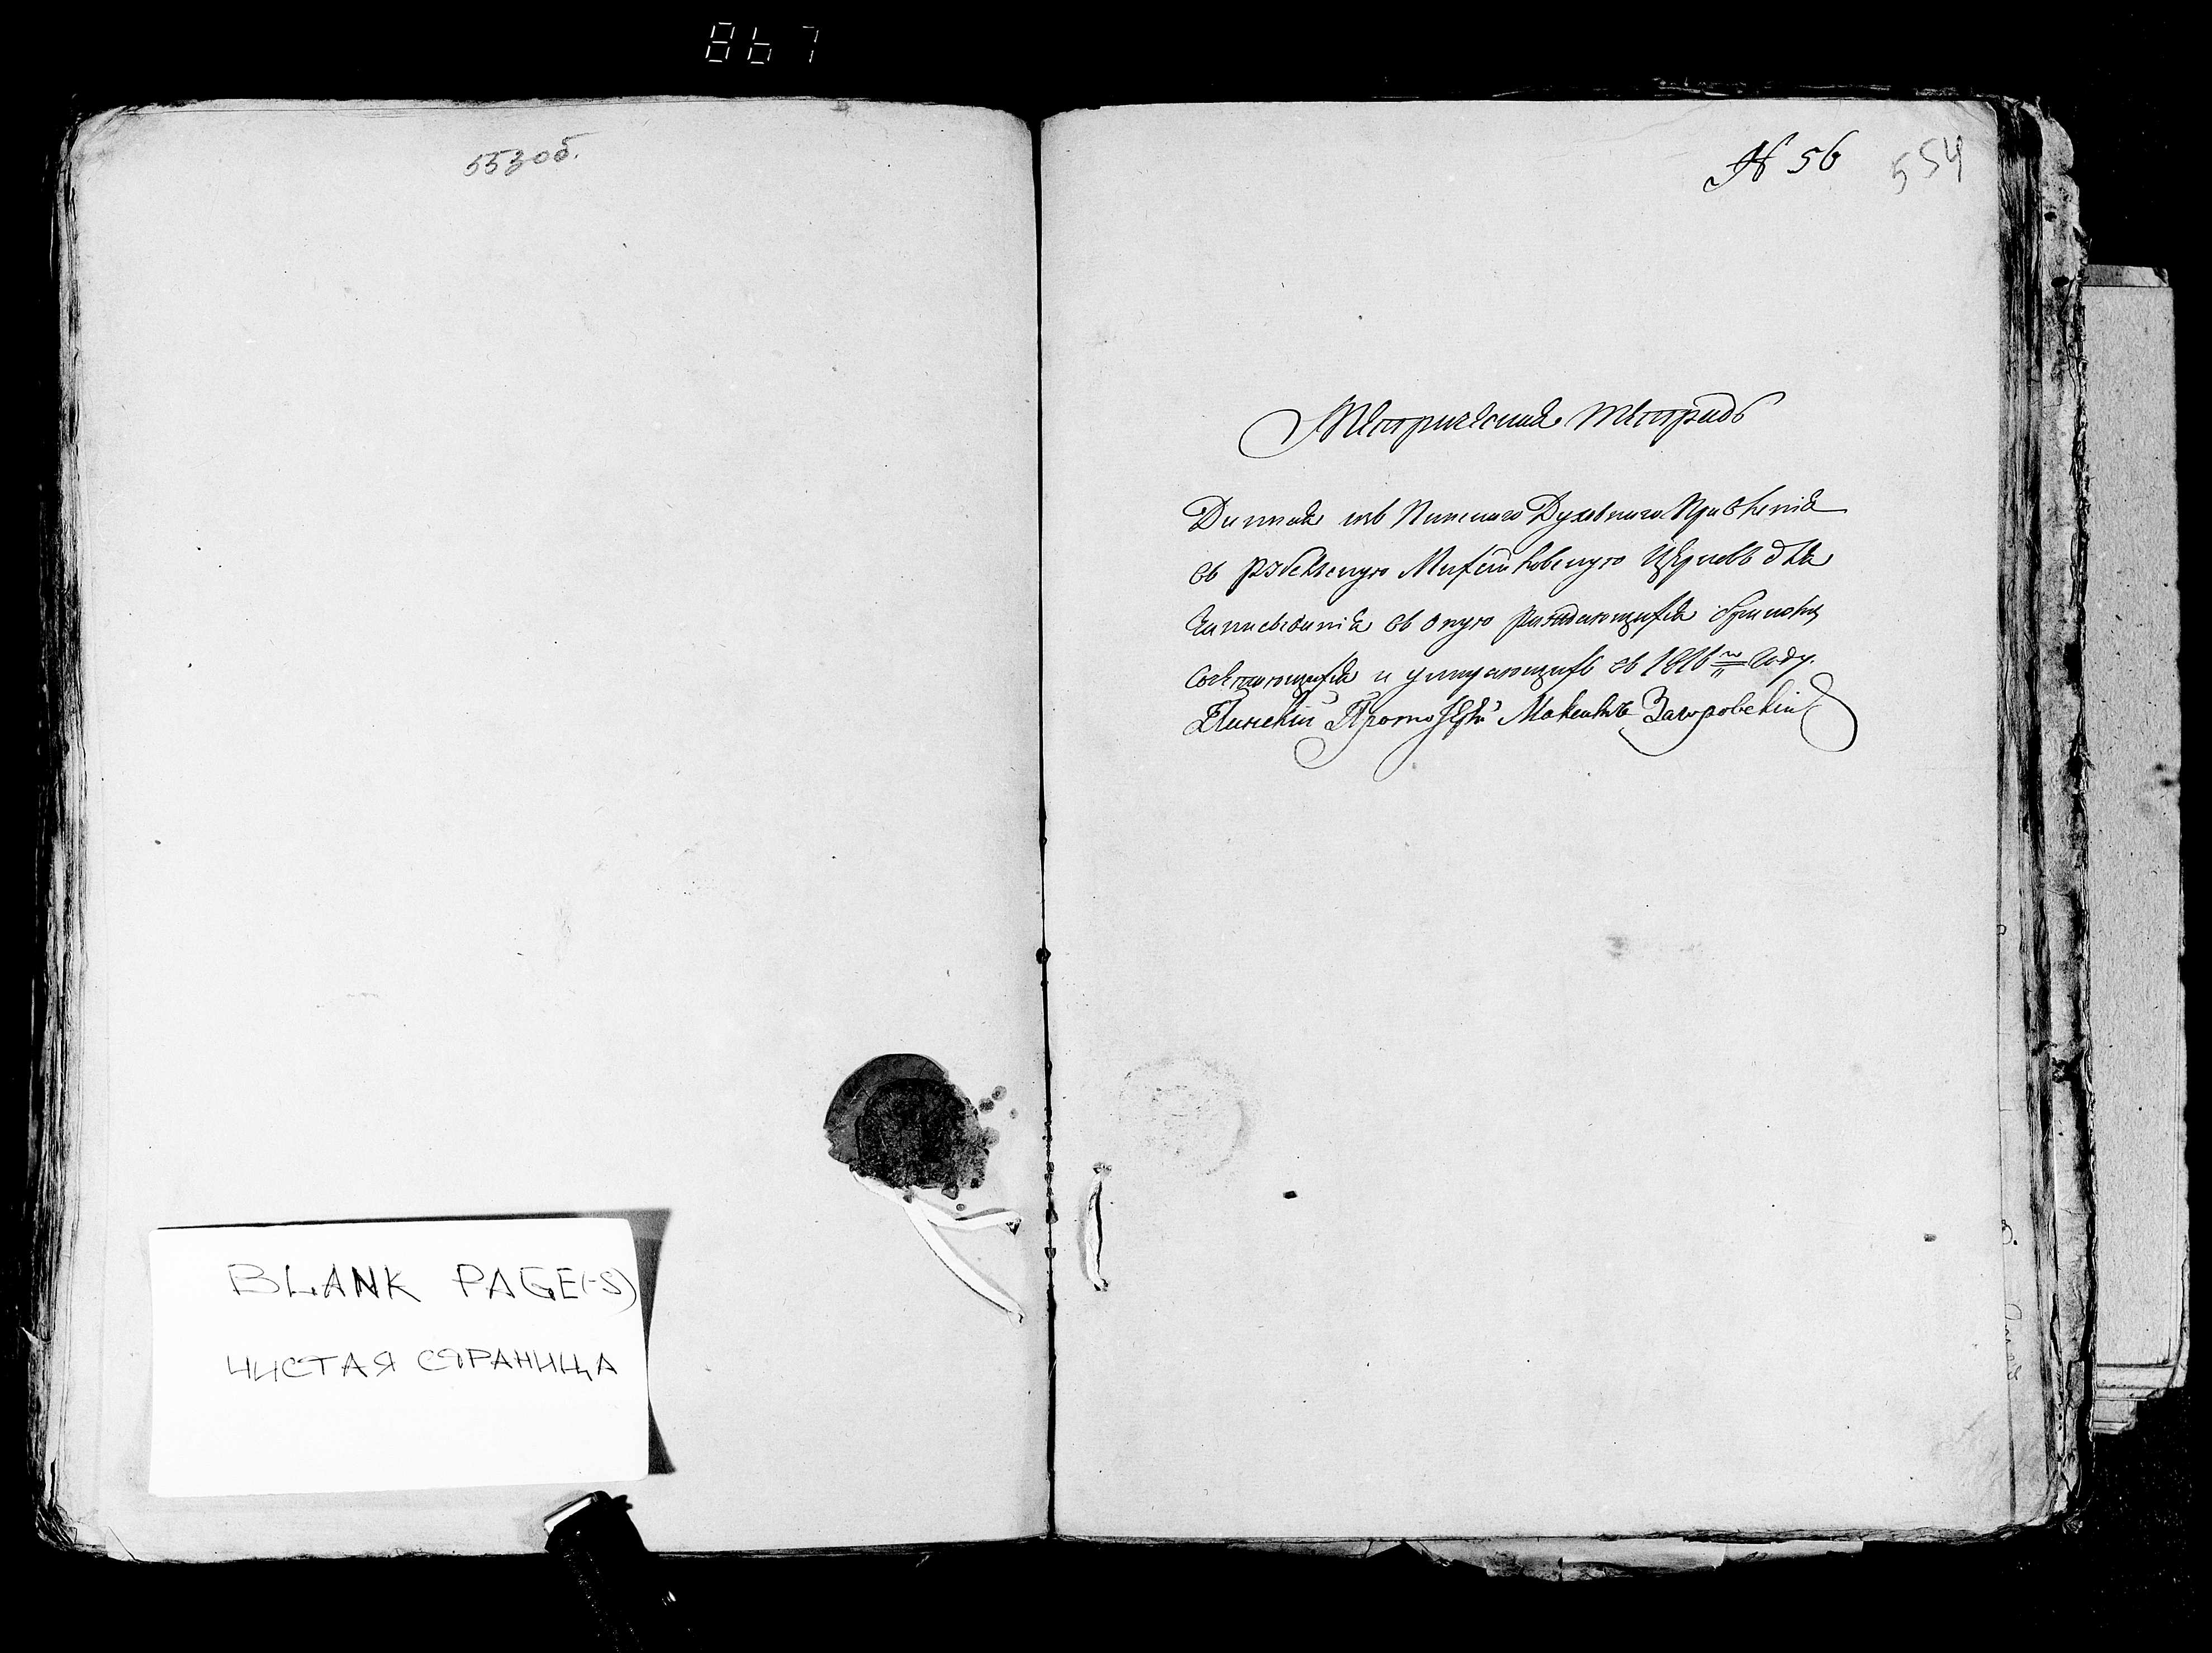 867
553об.
№ 56 554
Метрическая тетрадь
Данная изъ Пинскаго Духовнаго Правленія
въ Михайловскую Церковь для
записыванія въ оную раждающихся бракомъ
сочетающихся и умирающихъ въ 1816 м году.
Пинскій Протоіерей Заировскій
BLANK PAGE(-S)
ЧИСТАЯ СТРАНИЦА